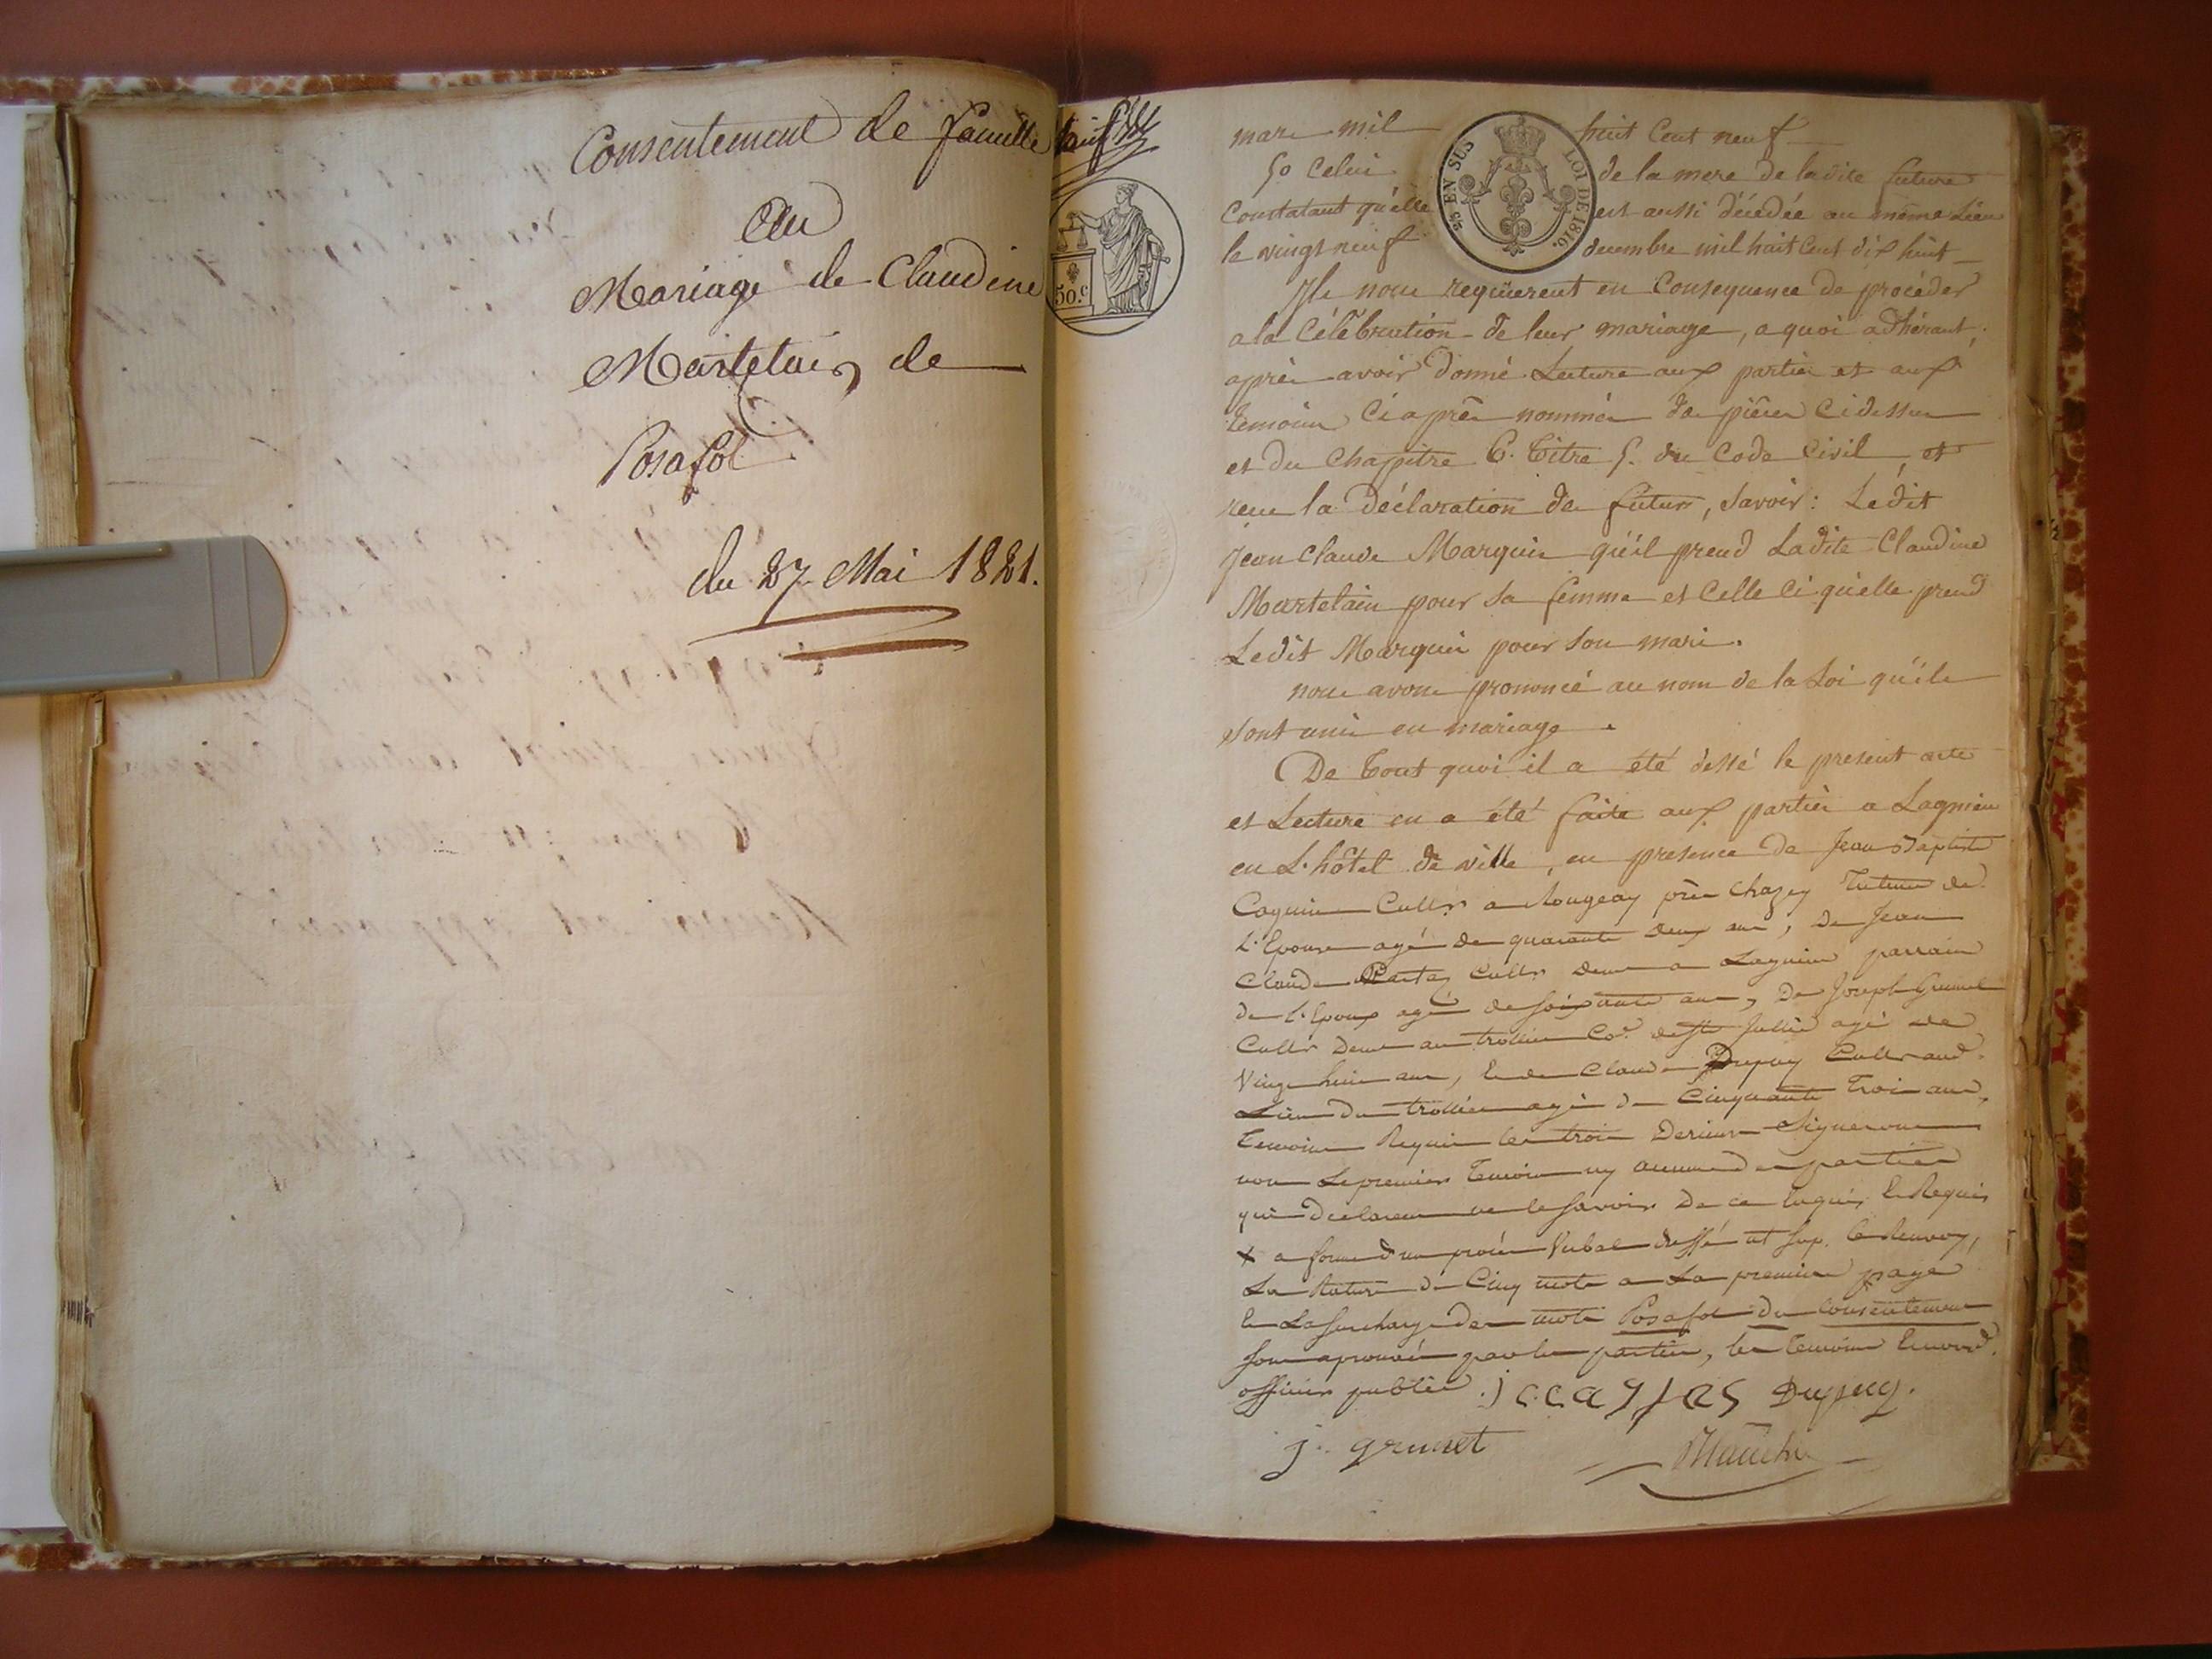 Consentement de famille
au
Mariage de Claudine
Martelain de
Posafol
du 27 Mai 1821.
50.c
2/5 EN SUS
LOI DE 1816.
mars mil huit Cent neuf
5o Celui de la mere de ladite future
Constatant qu'elle est aussi décedée au même Lieu
le vingt neuf decembre mil huit Cent dix huit
Ils nous requierent en Consequence de procéder
a la Célébration de leur mariage, a quoi adhérant,
après avoir donné Lecture aux parties et aux
temoins Ci après nommés des pièces Ci dessus
et du Chapitre 6. Titre 5. du Code Civil, et
recu la Déclaration des futurs, Savoir: Ledit
Jean Claude Marquis qu'il prend Ladite Claudine
Martelain pour sa femme et Celle Ci qu'elle prend
Ledit Marquis pour Son mari.
nous avons prononcé au nom de la Loi qu'ils
sont unis en mariage.
De Tout quoi il a été dessé le present acte
et Lecture en a été faite aux parties a Lagnieu
en L'hôtel de ville, en presence de Jean Baptiste
Coquin Cultr a près Chazey Tuteur de
L'Epouse agé de quarante deux ans, De Jean
Claude Cultr Demt a Lagnieu parrain
de L'Epoux agé de soixante ans, De Joseph Grumet
Cultr Demt au trollier Cne de St Jullie agé de
Vingt huit ans, Et de Claude Dupuy Cultr aud.
Lieu du trollier agé de Cinquante Trois ans,
Temoins Requis les trois Deriers Signerons
non Le premier Temoin ny aucune des parties
qui Declarent ne le Savoir De ce Enquis Et Requis
x a forme d'un procès Verbal dressé ut Sup. Le Renvoy,
La Rature de Cinq mots a La premiere page
Et La Surcharge des mots Posafol du Consentement
Sont aprouvés par les parties, les Temoins Et nous d.
officier public.
Dupuy.
j. grumet